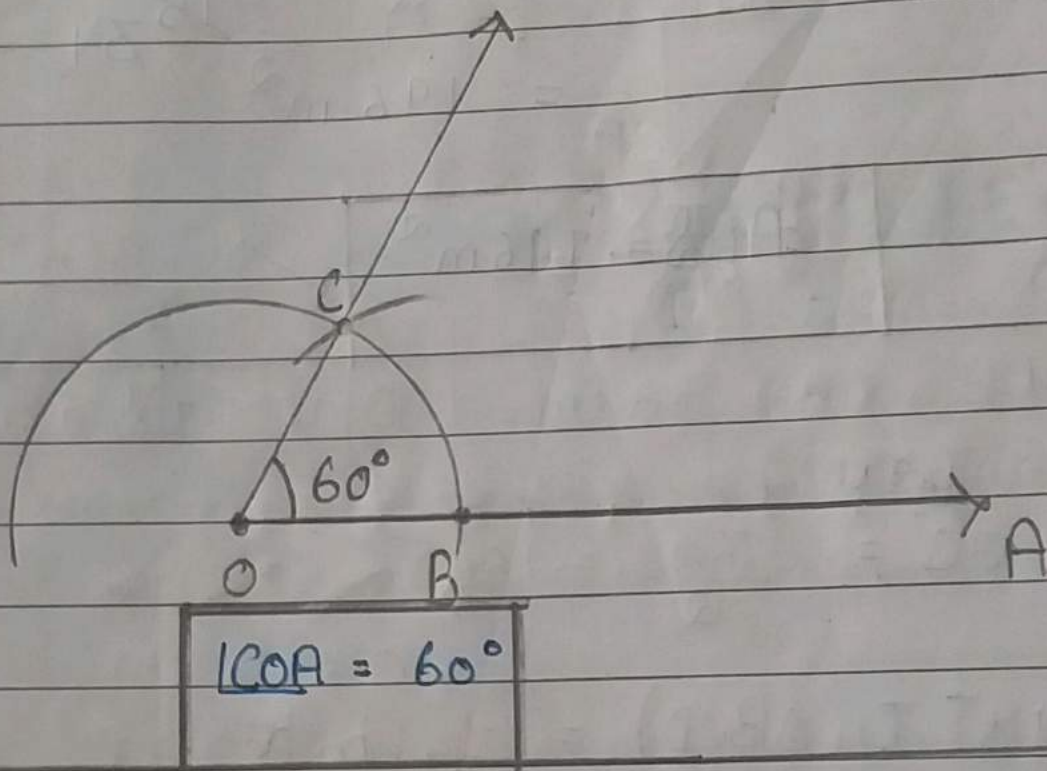 C
60°
O B
A
∠COA = 60°